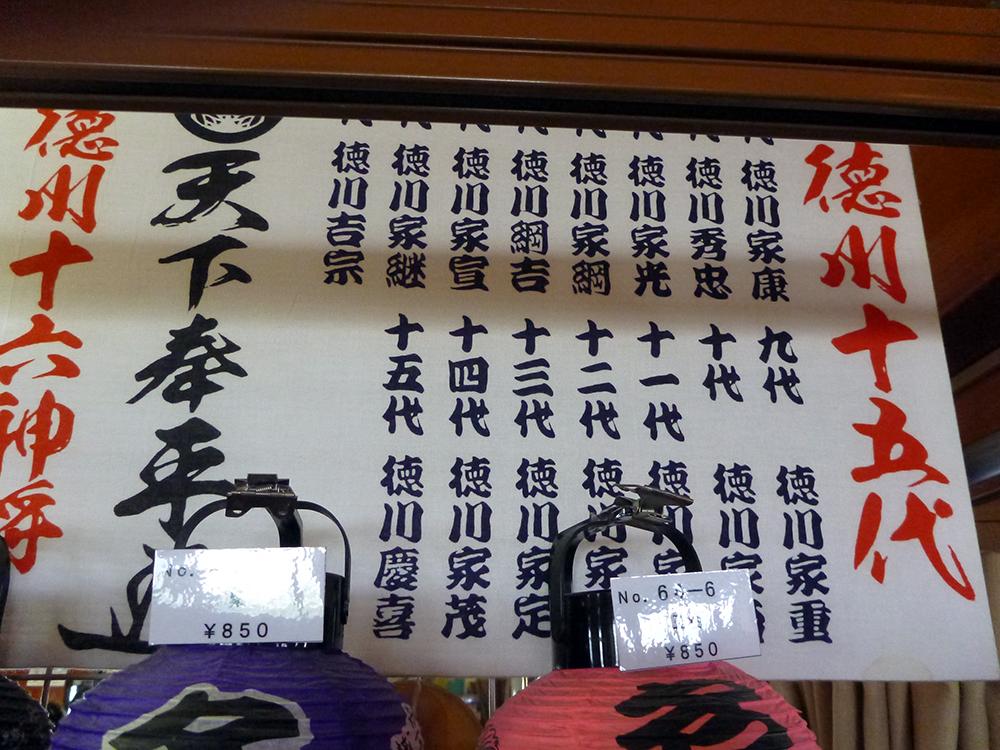 徳川十五代
徳川家康
徳川秀忠
徳川家光
徳川家綱
徳川綱吉
徳川家宣
徳川家継
徳川吉宗
九代 徳川家重
十代 徳川家
十一代 徳川
十二代 徳川家
十三代 徳川家定
十四代 徳川家茂
十五代 徳川慶喜
天下奉平
徳川十六神将
No.
¥850
No.
¥850